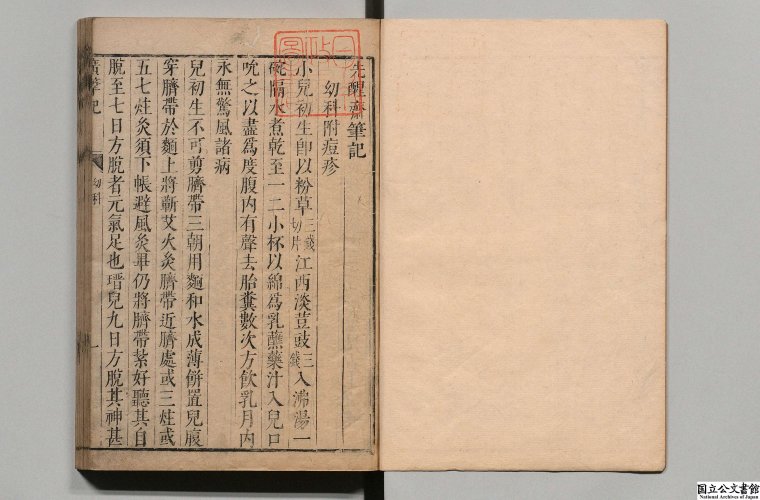 先醒齋筆記
幼科附痘疹
小兒初生卽以粉草三錢切片江西淡荳豉三錢入沸湯一
碗隔水煮乾至一二小杯以綿爲乳蘸藥汁入兒口
吮之以盡爲度腹內有聲去胎糞數次方飲乳月內
永無驚風諸病
兒初生不可剪臍帶三朝用麵和水成薄餅置兒腹
穿臍帶於麵上將蘄艾火灸臍帶近臍處或三炷或
五七炷灸須下帳避風灸畢仍將臍帶紮好聽其自
脫至七日方脫者元氣足也瑨兒九日方脫其神甚
廣筆記
幼科
一
国立公文書館
National Archives of Japan